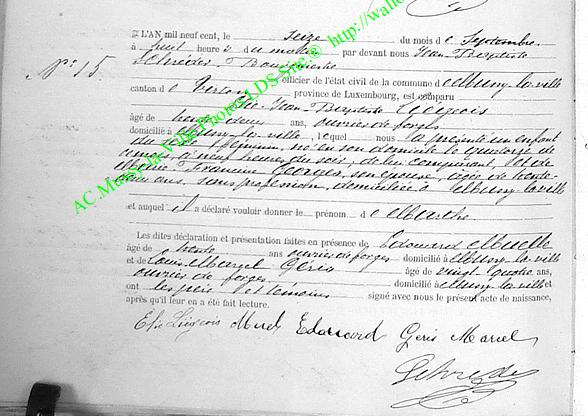 L'AN mil neuf cent, le seize du mois de Septembre
à huit heures du matin par devant nous Jean Baptiste
Schréder Bourgmestre
N° 15 officier de l'état civil de la commune de Mussy la ville
canton de Virton province de Luxembourg, est comparu
Jean Baptiste Liégeois
âgé de trente deux ans, ouvrier de forges
domicilié à Mussy la ville, lequel nous a présenté un enfant
du sexe féminin, né en son domicile le quinze de ce
mois, à neuf heures du soir, de lui comparant, et de
Georges, son épouse, âgée de trente
deux ans, sans profession, domiciliée à Mussy la ville
et auquel il a déclaré vouloir donner le prénom de Marthe
Les dites déclaration et présentation faites en présence de Edouard
âgé de trente ans ouvrier de forges domicilié à Mussy la ville
et de Louis Marcel Géris âgé de vingt quatre ans,
ouvrier de forges domicilié à Mussy la ville et
ont les père et témoins signé avec nous le présent acte de naissance,
après qu'il leur en a été fait lecture.
Liégeois Edouard Geris Marcel
Schréder
AC.Mussy-la-Ville-Photos-LDS-Src® http://wall